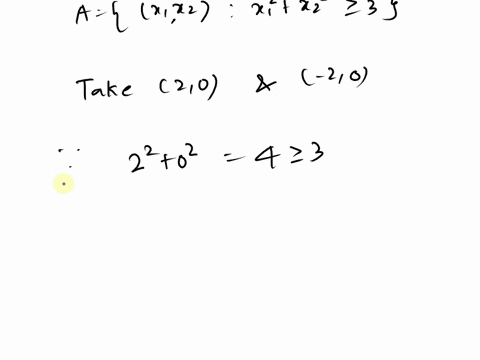 A = { (x₁,x₂) : x₁² + x₂² ≥ 3 }
Take (2,0) & (-2,0)
∵ 2² + 0² = 4 ≥ 3